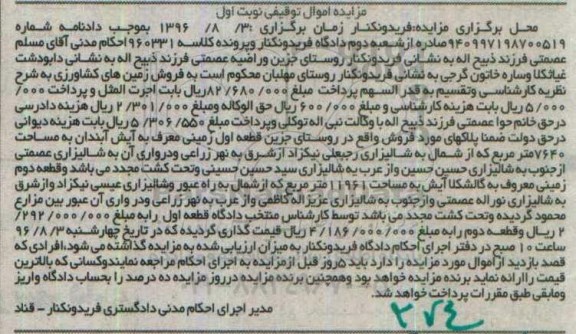 مزایده اموال توقیفی نوبت اول
محل برگزاری مزایده:فریدونکنار زمان برگزاری :۳/ ۸/ ۱۳۹۶ بموجب دادنامه شماره
۹۴۰۹۹۷۱۹۸۷۰۰۵۱۹صادره ازشعبه دوم دادگاه فریدونکنار وپرونده کلاسه ۹۶۰۳۳۱ احکام مدنی آقای مسلم
عصمتی فرزند ذبیح اله به نشانی فریدونکنار روستای جزین وراضیه عصمتی فرزند ذبیح اله به نشانی دابودشت
غیاثکلا وساره خاتون گرجی به نشانی فریدونکنار روستای مهلبان محکوم است به فروش زمین های کشاورزی به شرح
نظریه کارشناسی وتقسیم به قدر السهم پرداخت مبلغ ۸۲/۶۸۰/۰۰۰ریال بابت اجرت المثل و پرداخت ۰۰۰/
۵/۰۰۰ریال بابت هزینه کارشناسی و مبلغ ۶۰۰/۰۰۰ ریال حق الوکاله ومبلغ ۲/۳۰۱/۰۰۰ ریال هزینه دادرسی
درحق خانم حوا عصمتی فرزند ذبیح اله با وکالت نبی اله توکلی وپرداخت مبلغ ۵/۳۰۶/۵۵۰ ریال بابت هزینه دیوانی
درحق دولت ضمنا پلاکهای مورد فروش واقع در روستای جزین قطعه اول زمینی معرف به آیش آبندان به مساحت
۷۶۴۰متر مربع که از شمال به شالیزاری رجبعلی نیکزاد ازشرق به نهر زراعی ودرواری آن به شالیزاری عصمتی
ازجنوب به شالیزاری حسین حسین واز عرب به شالیزاری سید حسین حسینی وتحت کشت مجدد می باشد وقطعه دوم
زمینی معروف به گالشکلا آیش به مساحت ۱۱۹۶۱ متر مربع که ازشمال به راه عبور وشالیزاری عیسی نیکزاد وازشرق
به شالیزاری نوراله عصمتی وازجنوب به شالیزاری عزیزاله کاظمی واز عرب به نهر زراعی ودر واری آن عبور بین مزارع
محمود گردیده وتحت کشت مجدد می باشد توسط کارشناس منتخب دادگاه قطعه اول رابه مبلغ ۲۹۲/۰۰۰/۰۰۰/
۲ ریال وقطعه دوم رابه مبلغ ۴/۱۸۶/۰۰۰/۰۰۰ ریال قیمت گذاری گردیده که در تاریخ چهارشنبه ۹۶/۸/۳
ساعت ۱۰ صبح در دفتر اجرای احکام دادگاه فریدونکنار به میزان ارزیابی شده به مزایده گذاشته می شود،افرادی که
قصد بازدید از اموال مورد مزایده را دارد باید ۵روز قبل ازمزایده به اجرای احکام مراجعه نمایندوکسانی که بالاترین
قیمت را ارائه نماید برنده مزایده خواهد بود وهمچنین برنده مزایده درروز مزایده ده درصد را بحساب دادگاه واریز
ومابقی طبق مقررات پرداخت خواهد شد.
مدیر اجرای احکام مدنی دادگستری فریدونکنار - قناد
۲۷۴